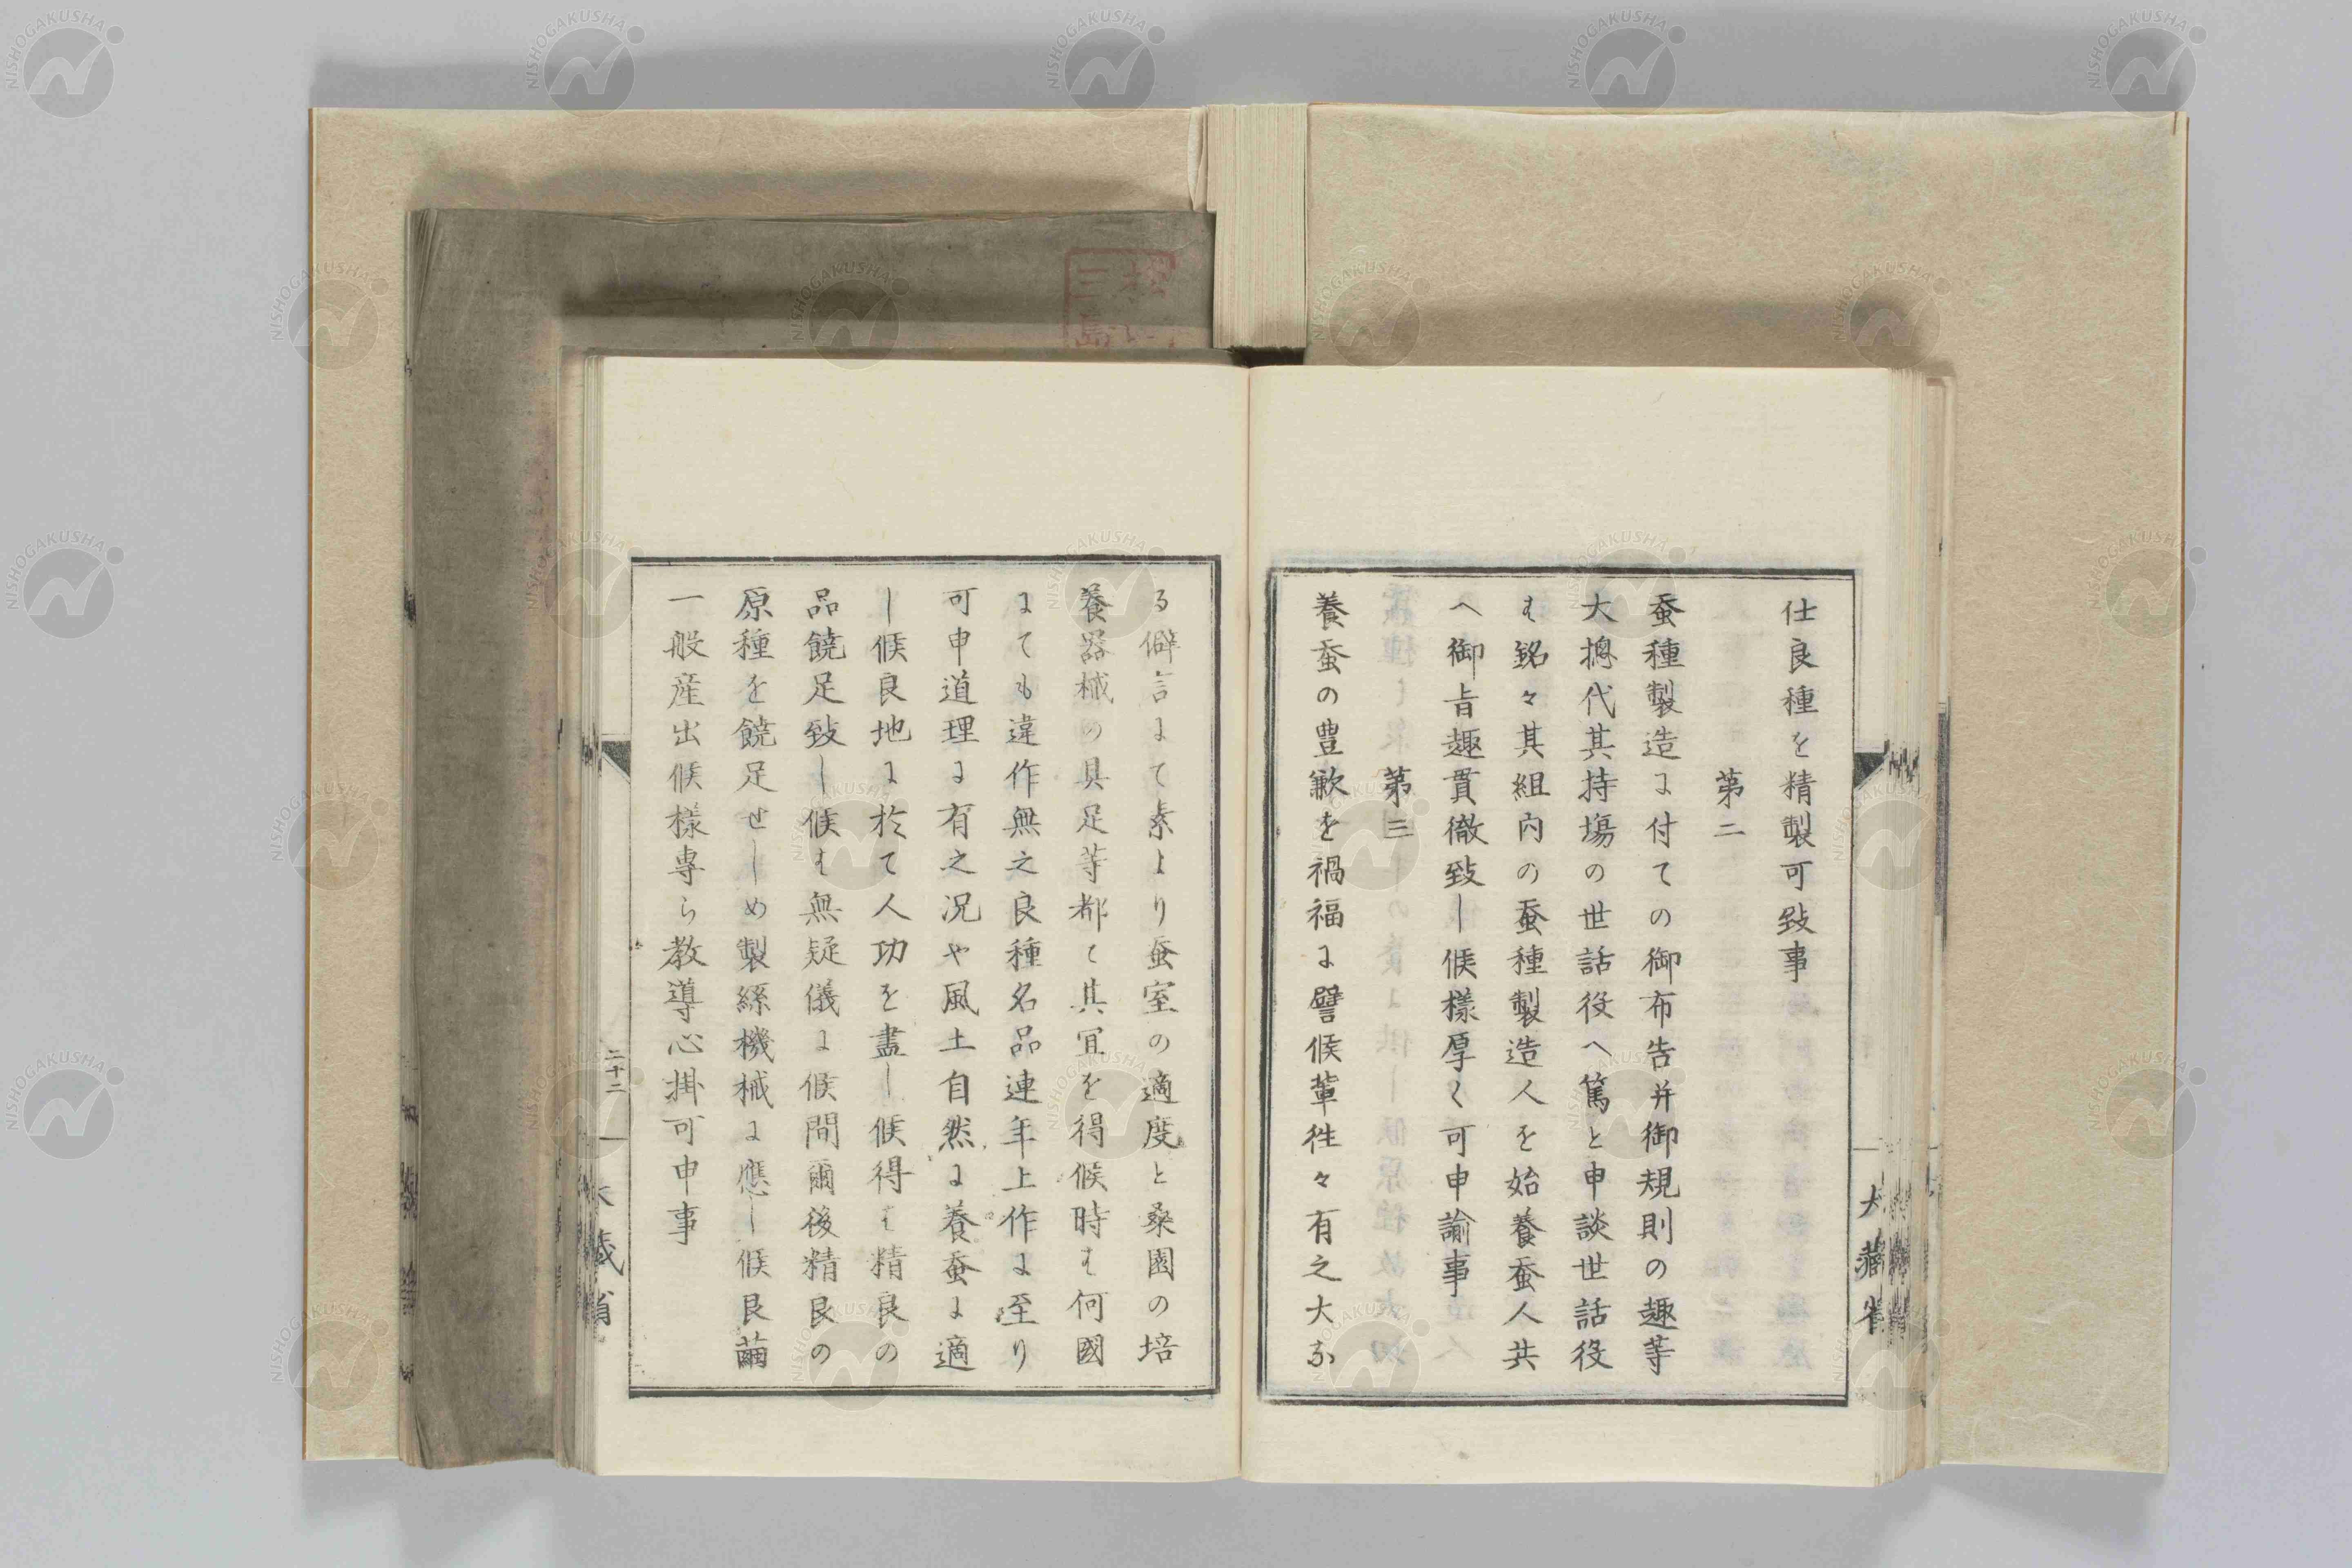 仕良種を精製可致事
第二
蚕種製造に付ての御布告并御規則の趣等
大摠代其持塲の世話役へ篤と申談世話役
は銘々其組内の蚕種製造人を始養蚕人共
へ御旨趣貫徹致し候樣厚く可申諭事
第三
養蚕の豊歉を禍福に譬候輩徃々有之大な
る僻言にて素より蚕室の適度と桑園の培
養器械の具足等都て其冝を得候時は何國
にても違作無之良種名品連年上作に至り
可申道理に有之况や風土自然に養蚕に適
し候良地に於て人功を盡し候得は精良の
品饒足致し候は無疑儀に候間爾後精良の
原種を饒足せしめ製絲機械に應し候良繭
一般産出候樣専ら教導心掛可申事
二十二
大藏省
NISHOGAKUSHA